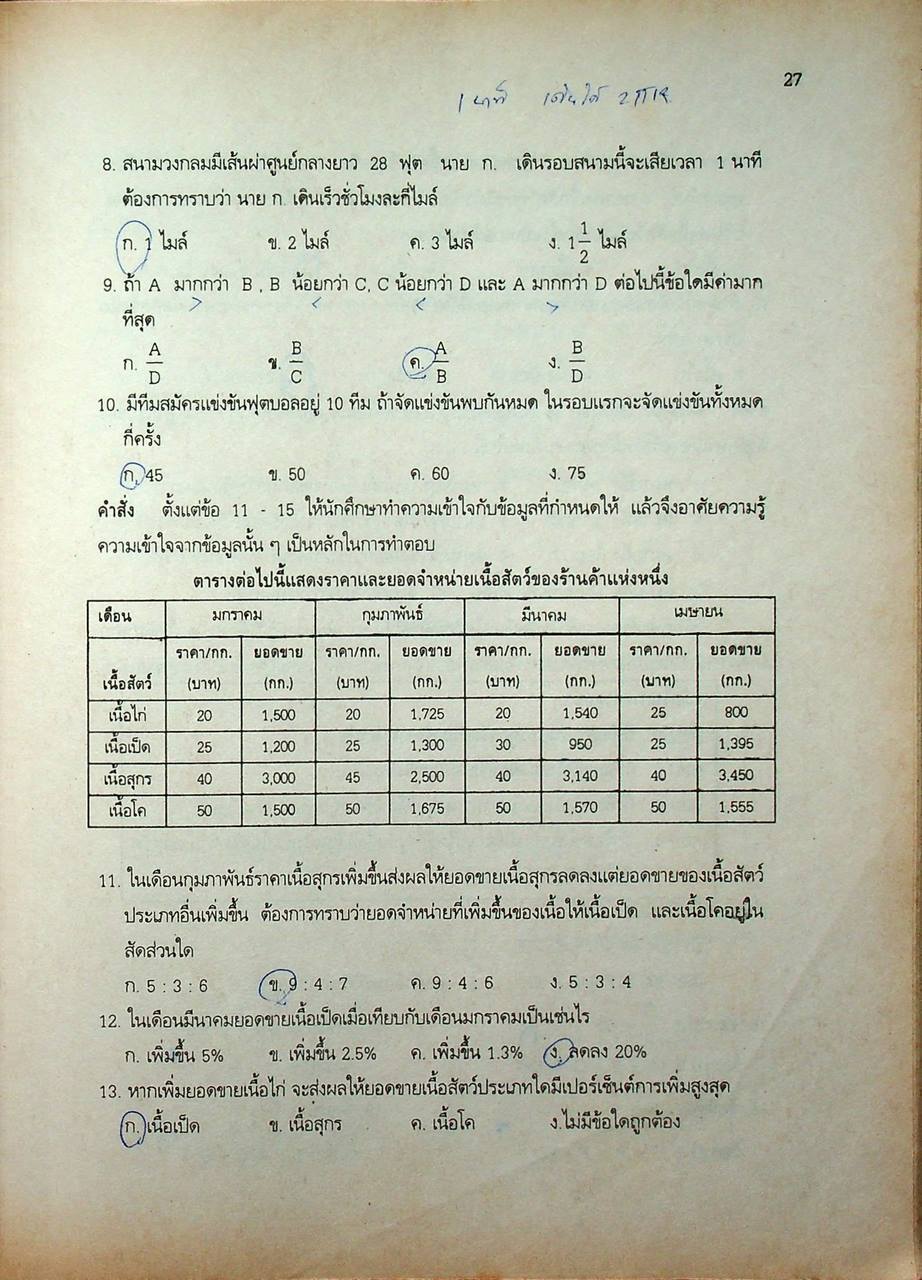 27
1 นาที เดินได้ 2πr
8. สนามวงกลมมีเส้นผ่าศูนย์กลางยาว 28 ฟุต นาย ก. เดินรอบสนามนี้จะเสียเวลา 1 นาที
ต้องการทราบว่า นาย ก. เดินเร็วชั่วโมงละกี่ไมล์
ก. 1 ไมล์ ข. 2 ไมล์ ค. 3 ไมล์ ง. 1 1/2 ไมล์
9. ถ้า A มากกว่า B , B น้อยกว่า C, C น้อยกว่า D และ A มากกว่า D ต่อไปนี้ข้อใดมีค่ามาก
> < < >
ที่สุด
ก. A/D ข. B/C ค. A/B ง. B/D
10. มีทีมสมัครแข่งขันฟุตบอลอยู่ 10 ทีม ถ้าจัดแข่งขันพบกันหมด ในรอบแรกจะจัดแข่งขันทั้งหมด
กี่ครั้ง
ก. 45 ข. 50 ค. 60 ง. 75
คำสั่ง ตั้งแต่ข้อ 11 - 15 ให้นักศึกษาทำความเข้าใจกับข้อมูลที่กำหนดให้ แล้วจึงอาศัยความรู้
ความเข้าใจจากข้อมูลนั้น ๆ เป็นหลักในการทำตอบ
ตารางต่อไปนี้แสดงราคาและยอดจำหน่ายเนื้อสัตว์ของร้านค้าแห่งหนึ่ง
เดือน มกราคม กุมภาพันธ์ มีนาคม เมษายน
ราคา/กก. ยอดขาย ราคา/กก. ยอดขาย ราคา/กก. ยอดขาย ราคา/กก. ยอดขาย
เนื้อสัตว์ (บาท) (กก.) (บาท) (กก.) (บาท) (กก.) (บาท) (กก.)
เนื้อไก่ 20 1,500 20 1,725 20 1,540 25 800
เนื้อเป็ด 25 1,200 25 1,300 30 950 25 1,395
เนื้อสุกร 40 3,000 45 2,500 40 3,140 40 3,450
เนื้อโค 50 1,500 50 1,675 50 1,570 50 1,555
11. ในเดือนกุมภาพันธ์ราคาเนื้อสุกรเพิ่มขึ้นส่งผลให้ยอดขายเนื้อสุกรลดลงแต่ยอดขายของเนื้อสัตว์
ประเภทอื่นเพิ่มขึ้น ต้องการทราบว่ายอดจำหน่ายที่เพิ่มขึ้นของเนื้อให้เนื้อเป็ด และเนื้อโคอยู่ใน
สัดส่วนใด
ก. 5 : 3 : 6 ข. 9 : 4 : 7 ค. 9 : 4 : 6 ง. 5 : 3 : 4
12. ในเดือนมีนาคมยอดขายเนื้อเป็ดเมื่อเทียบกับเดือนมกราคมเป็นเช่นไร
ก. เพิ่มขึ้น 5% ข. เพิ่มขึ้น 2.5% ค. เพิ่มขึ้น 1.3% ง. ลดลง 20%
13. หากเพิ่มยอดขายเนื้อไก่ จะส่งผลให้ยอดขายเนื้อสัตว์ประเภทใดมีเปอร์เซ็นต์การเพิ่มสูงสุด
ก. เนื้อเป็ด ข. เนื้อสุกร ค. เนื้อโค ง.ไม่มีข้อใดถูกต้อง